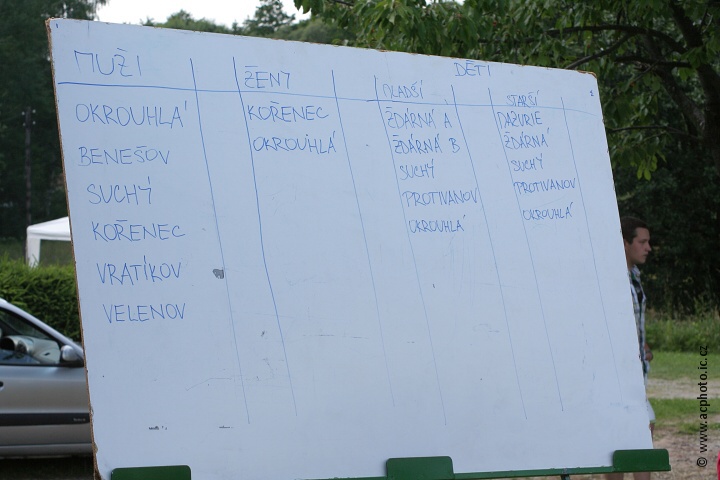 MUŽI
ŽENY
DĚTI
MLADŠÍ
STARŠÍ
OKROUHLÁ
BENEŠOV
SUCHÝ
KOŘENEC
VRATÍKOV
VELENOV
KOŘENEC
OKROUHLÁ
ŽĎÁRNÁ A
ŽĎÁRNÁ B
SUCHÝ
PROTIVANOV
OKROUHLÁ
ŽĎÁRNÁ
SUCHÝ
PROTIVANOV
OKROUHLÁ
© www.acphoto.ic.cz